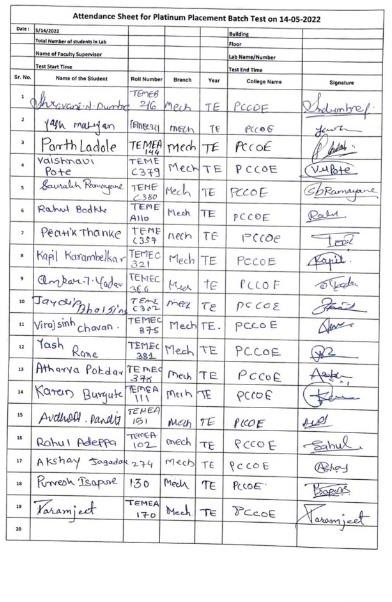 Attendance Sheet for Platinum Placement Batch Test on 14-05-2022
Date : 5/14/2022 Building
Total Number of students in Lab Floor
Name of Faculty Supervisor Lab Name/Number
Test Start Time Test End Time
Sr. No. Name of the Student Roll Number Branch Year College Name Signature
1 TEMEB 216 Mech TE PCCOE
2 Yash Mahajan Mech TE PCCOE
3 Parth Ladole TEMEA 144 Mech TE PCCOE
4 Vaishnavi Pote TEME C379 Mech TE PCCOE V.Pote
5 Saurabh Ramayane TEME C380 Mech TE PCCOE SbRamayane
6 Rahul Bodkhe TEME A110 Mech TE PCCOE
7 Pratik Thanke TEME C357 Mech TE PCCOE
8 Kapil Karambelkar TEMEC 321 Mech TE PCCOE Kapil
9 Omkar.T.Yadav TEMEC 386 Mech TE PCCOE
10 TEME C302 Mech TE PCCOE
11 Virajsinh Chavan. TEMEC 375 Mech TE. PCCOE
12 Yash Rane TEMEC 381 Mech TE PCCOE
13 Atharva Pokdar TEMEC 378 Mech TE PCCOE
14 Karan Burgute TEMEA 111 Mech TE PCCOE
15 TEMEA 151 Mech TE PCCOE
16 Rahul Adeppa TEMEA 102 Mech TE PCCOE
17 Akshay Jagadale 274 Mech TE PCCOE
18 Purvesh Isapure 130 Mech TE PCCOE
19 Taramjeet TEMEA 170 Mech TE PCCOE Taramjeet
20